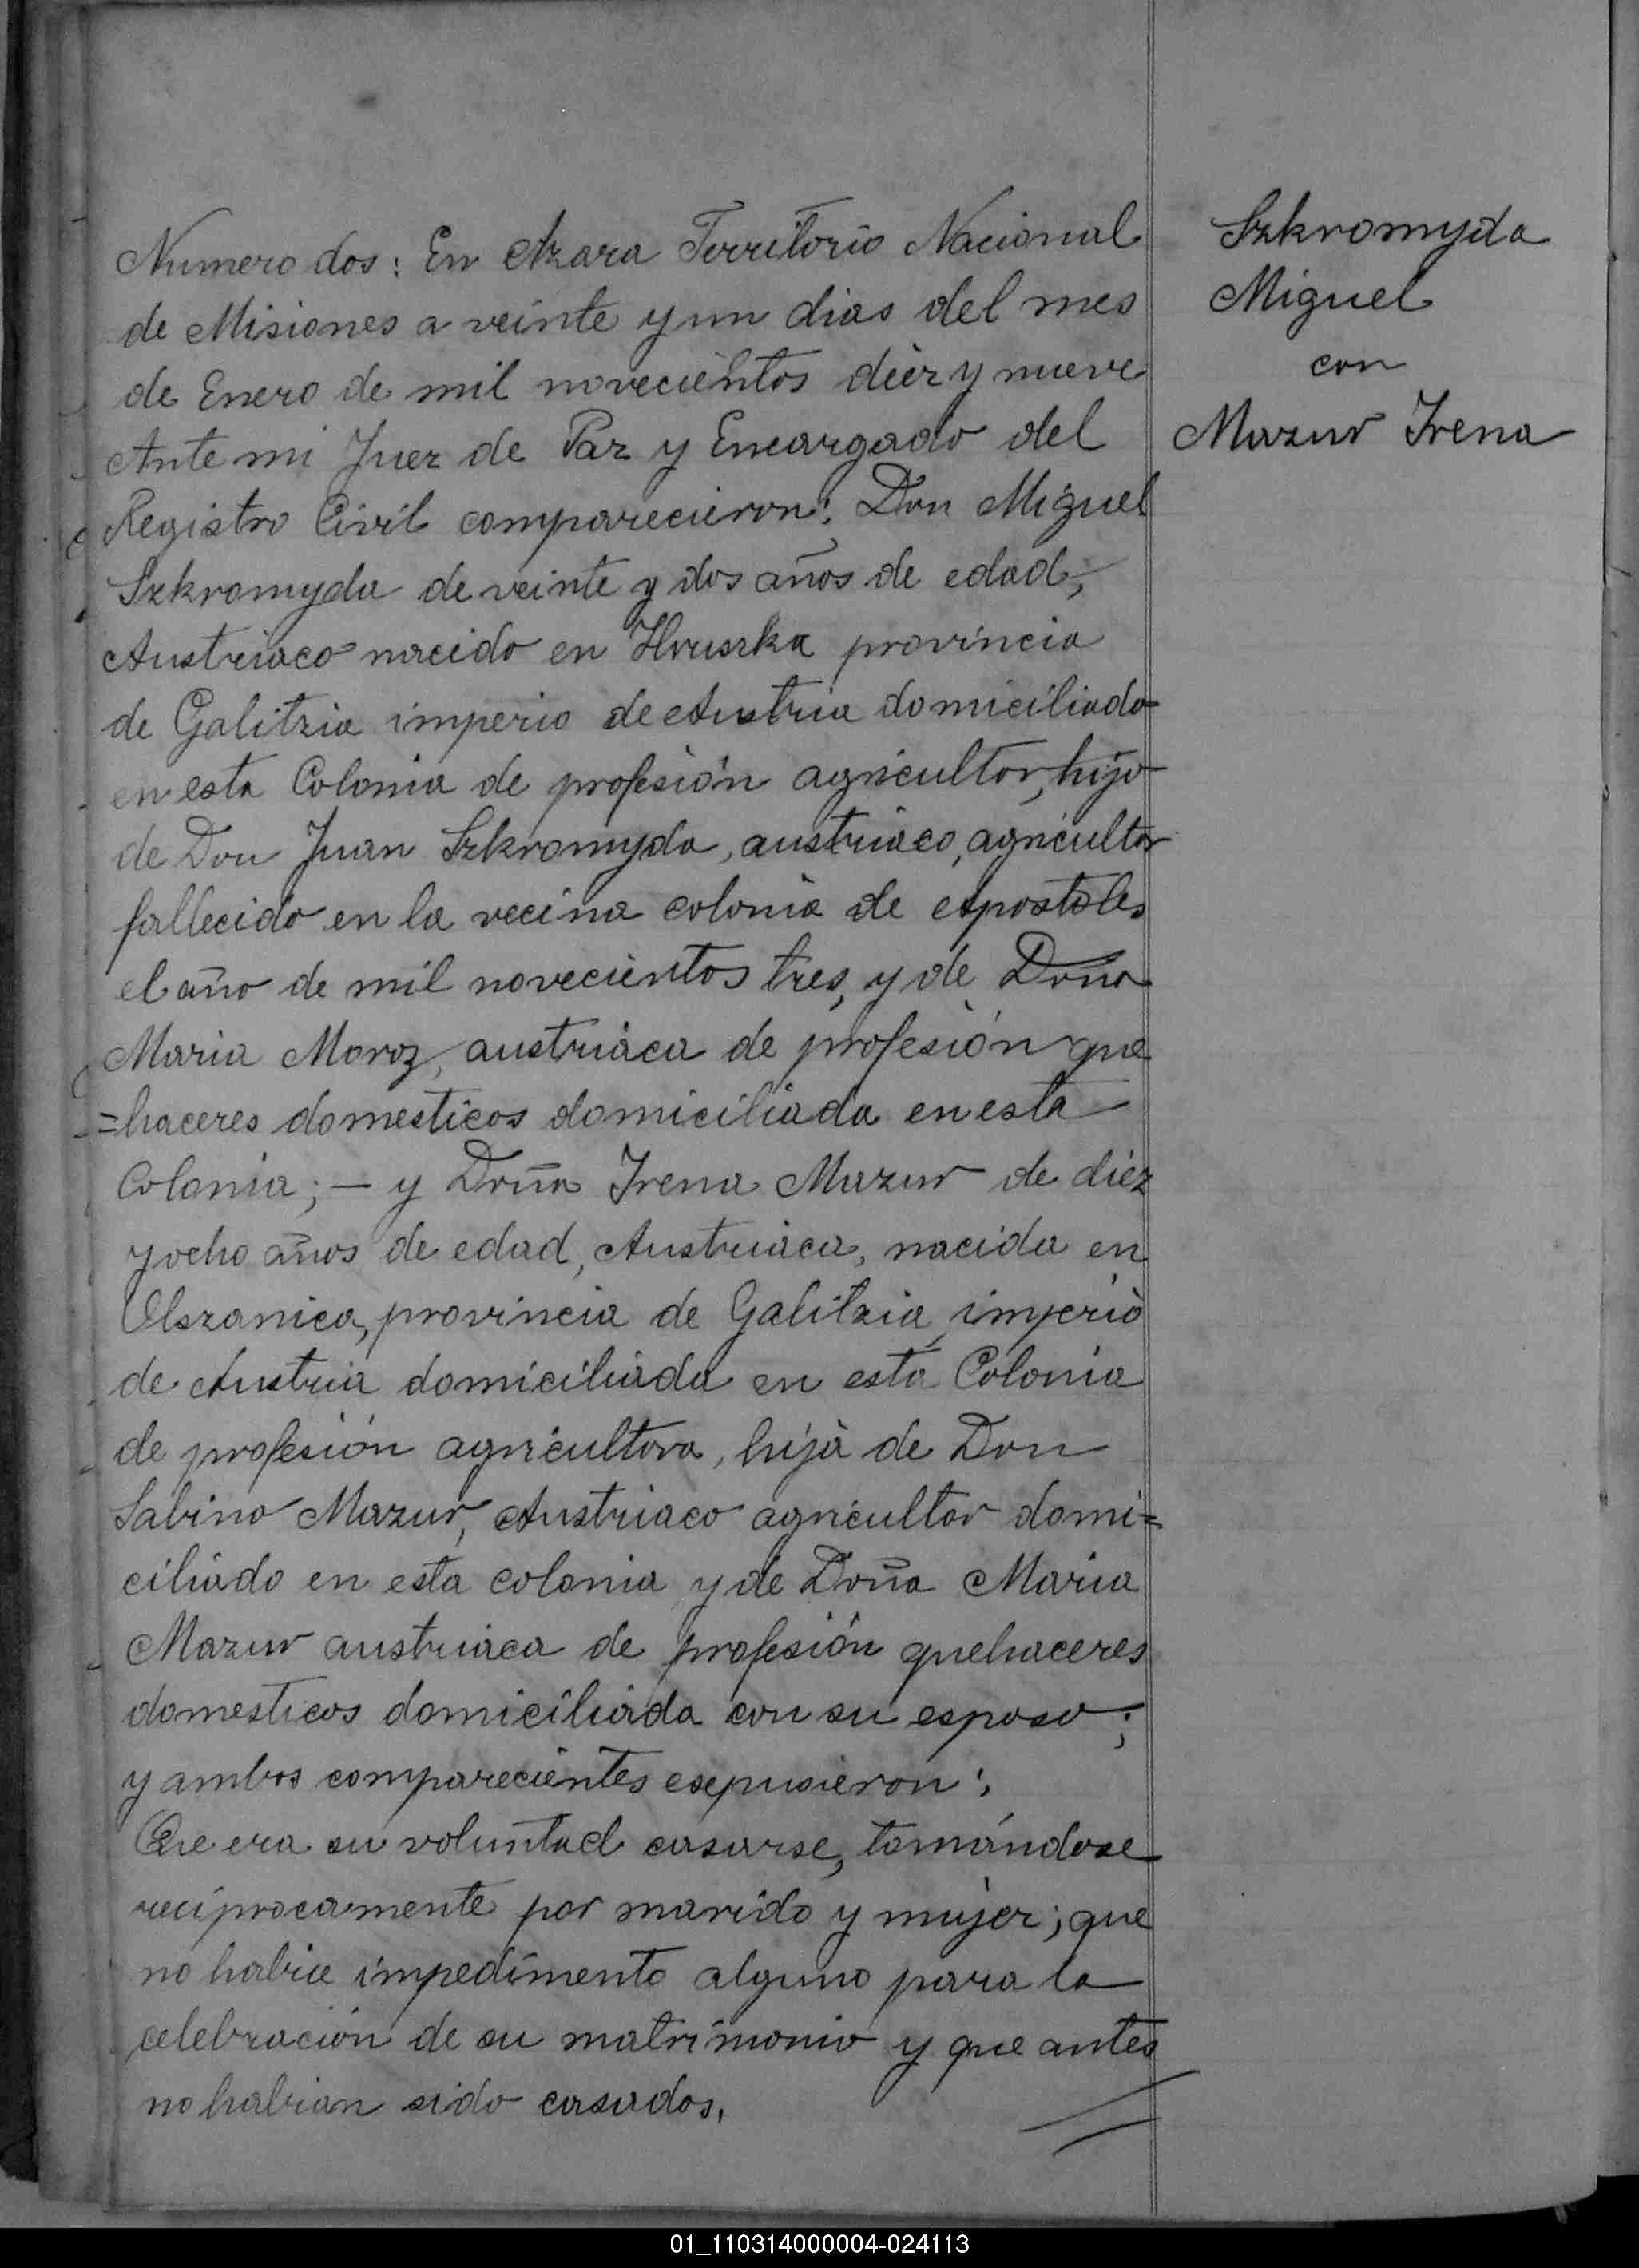 Numero dos: En Azara Territorio Nacional
de Misiones a veinte y un dias del mes
de Enero de mil novecientos diez y nueve
Ante mi Juez de Paz y Encargado del
Registro Civil comparecieron: Don Miguel
Szkromyda de veinte y dos años de edad,
Austriaco nacido en Hruszka provincia
de Galitzia imperio de Austria domiciliado
en esta Colonia de profesión agricultor, hijo
de Don Juan Szkromyda, austriaco, agricultor
fallecido en la vecina colonia de Apostoles
el año de mil novecientos tres, y de Doña
Maria Moroz, austriaca de profesión que
=haceres domesticos domiciliada en esta
Colonia; — y Doña Irena Mazur de diez
y ocho años de edad, Austriaca, nacida en
Olszanica, provincia de Galitzia, imperio
de Austria domiciliada en esta Colonia
de profesión agricultora, hija de Don
Sabino Mazur, Austriaco agricultor domi=
ciliado en esta colonia y de Doña Maria
Mazur austriaca de profesión quehaceres
domesticos domiciliada con su esposo;
y ambos comparecientes expusieron:
Que era su voluntad casarse, tomándose
reciprocamente por marido y mujer; que
no habia impedimento alguno para la
celebración de su matrimonio y que antes
no habian sido casados.
Szkromyda
Miguel
con
Mazur Irena
01_110314000004-024113